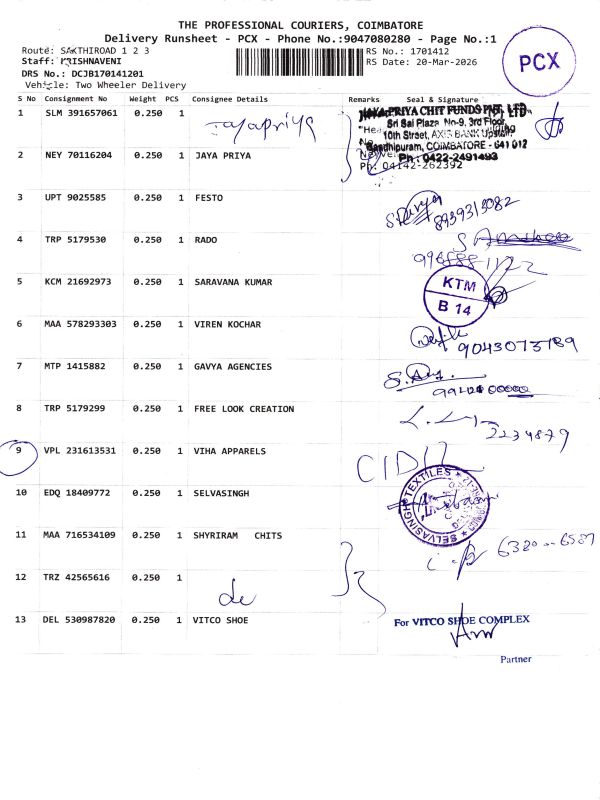 THE PROFESSIONAL COURIERS, COIMBATORE
Delivery Runsheet - PCX - Phone No.:9047080280 - Page No.:1
Route: SAKTHIROAD 1 2 3
Staff: KRISHNAVENI
DRS No.: DCJB170141201
Vehicle: Two Wheeler Delivery
RS No.: 1701412
RS Date: 20-Mar-2026
PCX
S No Consignment No Weight PCS Consignee Details Remarks Seal & Signature
1 SLM 391657061 0.250 1 Jayapriya
JAYAPRIYA CHIT FUNDS PVT. LTD.
Sri Sai Plaza No-9, 3rd Floor,
10th Street, AXIS BANK Upstair,
Gandhipuram, COIMBATORE - 641 012
Ph : 0422-2491493
Ph: 04142-262392
2 NEY 70116204 0.250 1 JAYA PRIYA
3 UPT 9025585 0.250 1 FESTO
8939313082
4 TRP 5179530 0.250 1 RADO
5 KCM 21692973 0.250 1 SARAVANA KUMAR
KTM
B 14
6 MAA 578293303 0.250 1 VIREN KOCHAR
9043073789
7 MTP 1415882 0.250 1 GAVYA AGENCIES
8 TRP 5179299 0.250 1 FREE LOOK CREATION
2234879
9 VPL 231613531 0.250 1 VIHA APPARELS
10 EDQ 18409772 0.250 1 SELVASINGH
SELVASINGH TEXTILES
11 MAA 716534109 0.250 1 SHYRIRAM CHITS
12 TRZ 42565616 0.250 1
13 DEL 530987820 0.250 1 VITCO SHOE
For VITCO SHOE COMPLEX
Partner